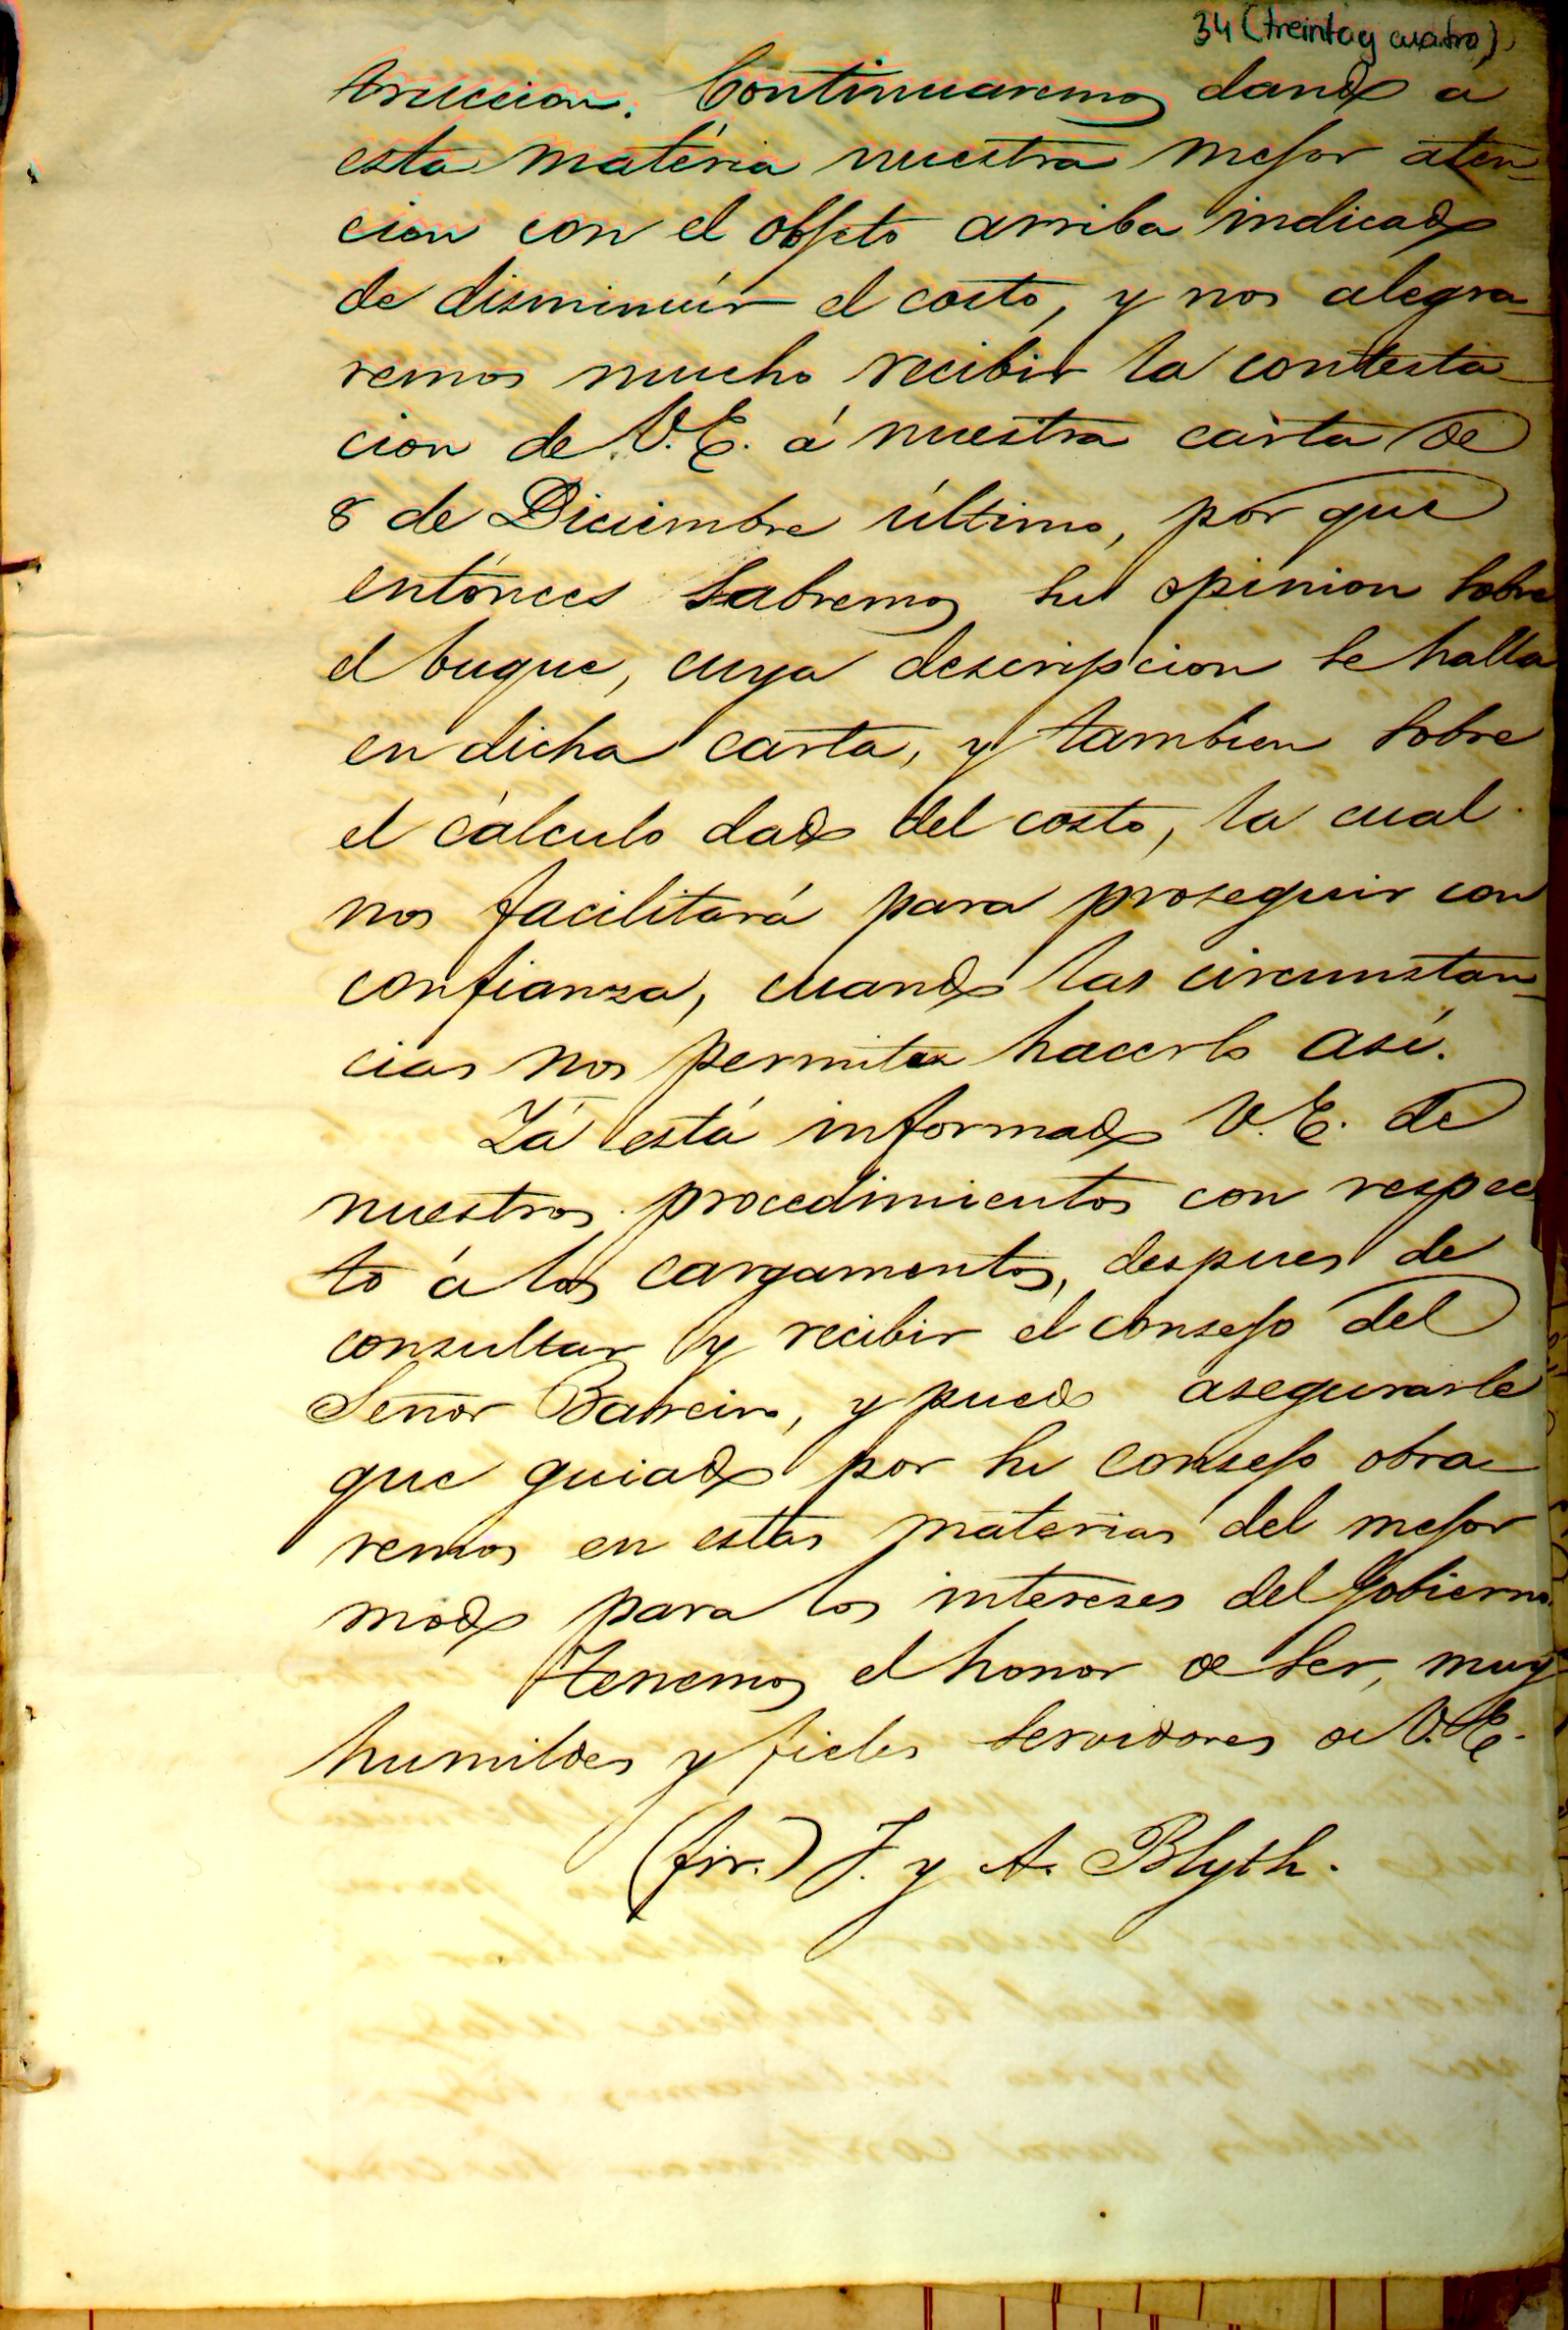 34 (treinta y cuatro)
truccion. Continuaremos dando á
esta matéria nuestra mejor aten-
cion con el objeto arriba indicado
de disminuir el costo, y nos alegra-
remos mucho recibir la contesta-
cion de V.E. á nuestra carta de
8 de Diciembre último, por que
entónces sabremos su opinion sobre
el buque, cuya descripcion se halla
en dicha carta, y tambien sobre
el cálculo dado del costo, la cual
nos facilitará para proseguir con
confianza, cuando las circunstan-
cias nos permitan hacerlo así.
Yá está informado V.E. de
nuestros procedimientos con respec
to á los cargamentos, despues de
consultar y recibir el consejo del
Señor Bareiro, y puedo asegurarle
que guiado por su consejo obra-
remos en estas materias del mejor
modo para los intereses del Gobierno.
Tenemos el honor de ser, muy
humildes y fieles servidores de V.E.
(fir.) J. y A. Blyth.